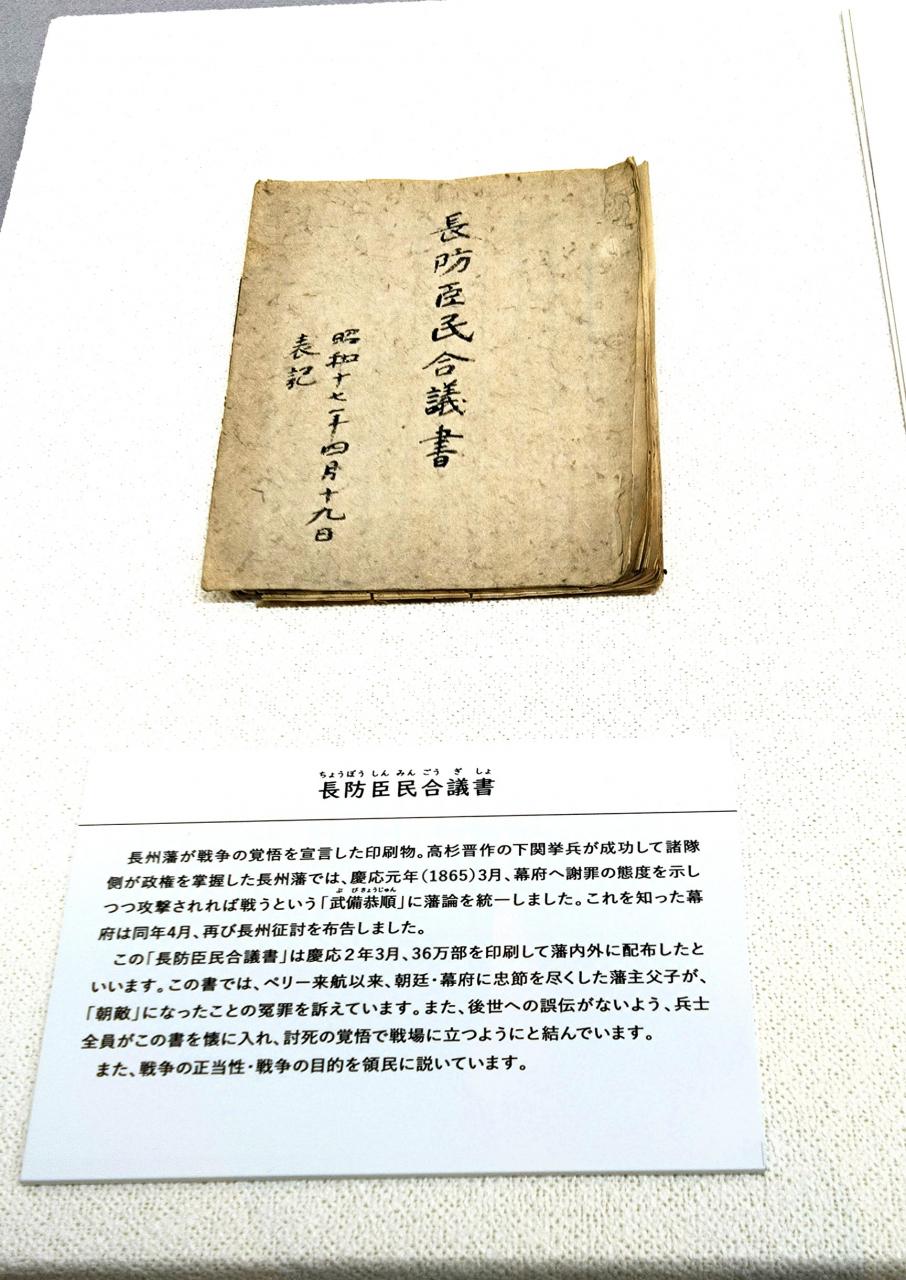 長防臣民合議書
昭和十七年四月十九日
表記
ちょうぼう しん みん ごう ぎ しょ
長防臣民合議書
長州藩が戦争の覚悟を宣言した印刷物。高杉晋作の下関挙兵が成功して諸隊
側が政権を掌握した長州藩では、慶応元年(1865)3月、幕府へ謝罪の態度を示し
ぶ び きょうじゅん
つつ攻撃されれば戦うという「武備恭順」に藩論を統一しました。これを知った幕
府は同年4月、再び長州征討を布告しました。
この「長防臣民合議書」は慶応2年3月、36万部を印刷して藩内外に配布したと
いいます。この書では、ペリー来航以来、朝廷・幕府に忠節を尽くした藩主父子が、
「朝敵」になったことの冤罪を訴えています。また、後世への誤伝がないよう、兵士
全員がこの書を懐に入れ、討死の覚悟で戦場に立つようにと結んでいます。
また、戦争の正当性・戦争の目的を領民に説いています。